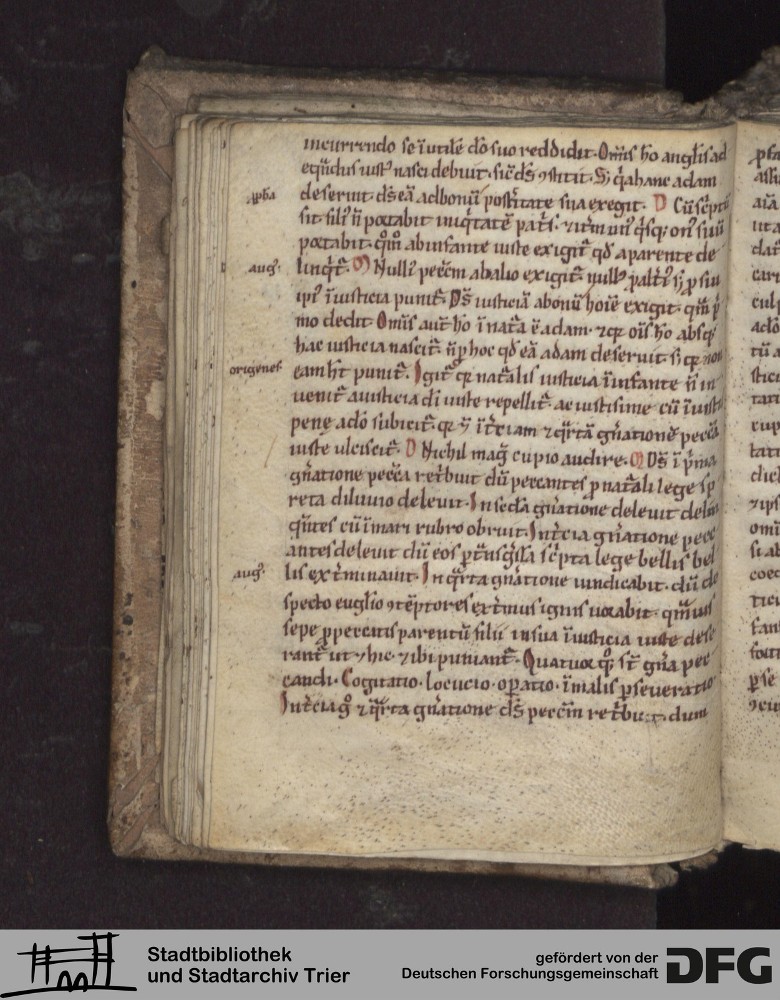 incurrendo se īutilē dō suo reddidit. Om̄is hō angl̓is ad
eq̄ndus iust᷒ nasci debuit. sic̄ dš ꝯstitit. Sꝫ q̓a hanc adam
deseruit dš eā ad bonū post̓itate sua exegit. D Cū sc̓ptū
ꝓph̄a
sit fili᷒ n̄ portabit iniq̓tatē pat̓s.
portabit. qm̄ ab infante iuste exigit᷒ qd̄ a parente de
linq̓t᷒. M Null᷒ pecc̄m ab alio exigit᷒
aug᷒.
ipi᷒ īiusticia punit᷒. Dš iusticiā ab omī hoīe exigit. quā p̓
mo dedit. Om̄is aut̄ hō ī nat̓a ē adam. ⁊ q̓r oīs hō absqꝫ
hac iusticia nascit᷒. n̄ ꝓ hoc qd̄ eā adam deseruit sꝫ q̓r non
origenes
eam ht̄ punit᷒. Igit᷒ q̓r nat̓alis iusticia ī infante n̄ in
uenit᷒ a iusticia dī iuste repellit᷒. ac iustissime cū īiusti
pene adō subicit᷒. q̓r ī t̓ciam ⁊ q̓rtā gn̄ationē pecc̄a
iuste ulciscit᷒. D Nichil mag̓ cupio audire. M Dš ī p̓ma
gn̄atione pecc̄a ret̓buit dū peccantes ꝑ nat̓ali lege sp
reta diluuio deleuit. In sc̄da gn̄atione deleuit
cū ī mari rubro obruit. In t̓cia gn̄atione pecc
antes deleuit dū eos ꝑ sc̓pta lege bellis bel
lis ext̓minauit. In q̓rta gn̄atione uindicabit. dū de
aug᷒.
specto euḡlio ꝯtēptores et̓nus ignis uorabit. quāuis
sepe ꝓ peccatis parentū filii in sua īiusticia iuste dese
rant᷒ ut ⁊ hic ⁊ ibi puniant᷒. Quatuor qꝫ st̄ gn̄a pec
candi. Cogitatio. locucio. oꝑatio. ī malis ꝑseueratio.
In t̓cia g̓ ⁊ q̓rta gn̄atione dš pecc̄m ret̓buit. dum
Stadtbibliothek
und Stadtarchiv Trier
gefördert von der
Deutschen Forschungsgemeinschaft
DFG